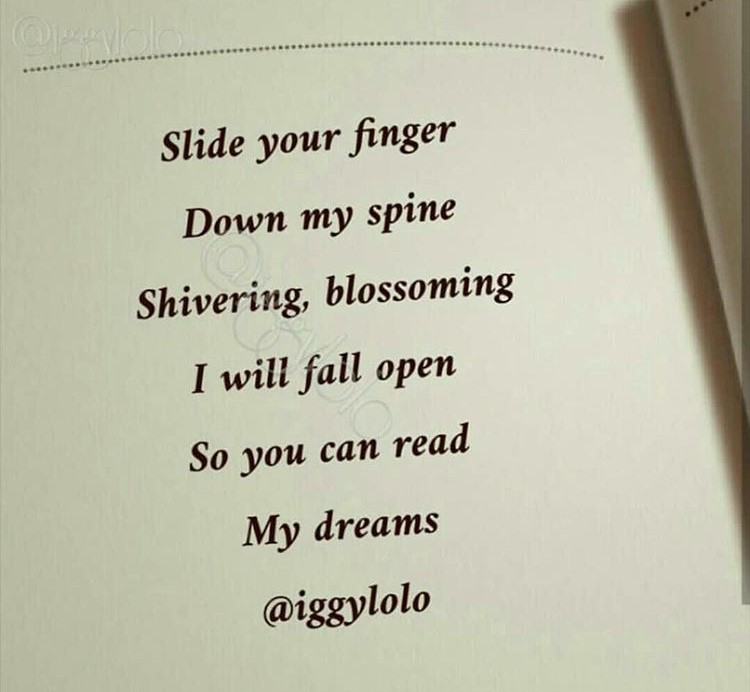 @iggylolo
Slide your finger
Down my spine
Shivering, blossoming
I will fall open
So you can read
My dreams
@iggylolo
@iggylolo